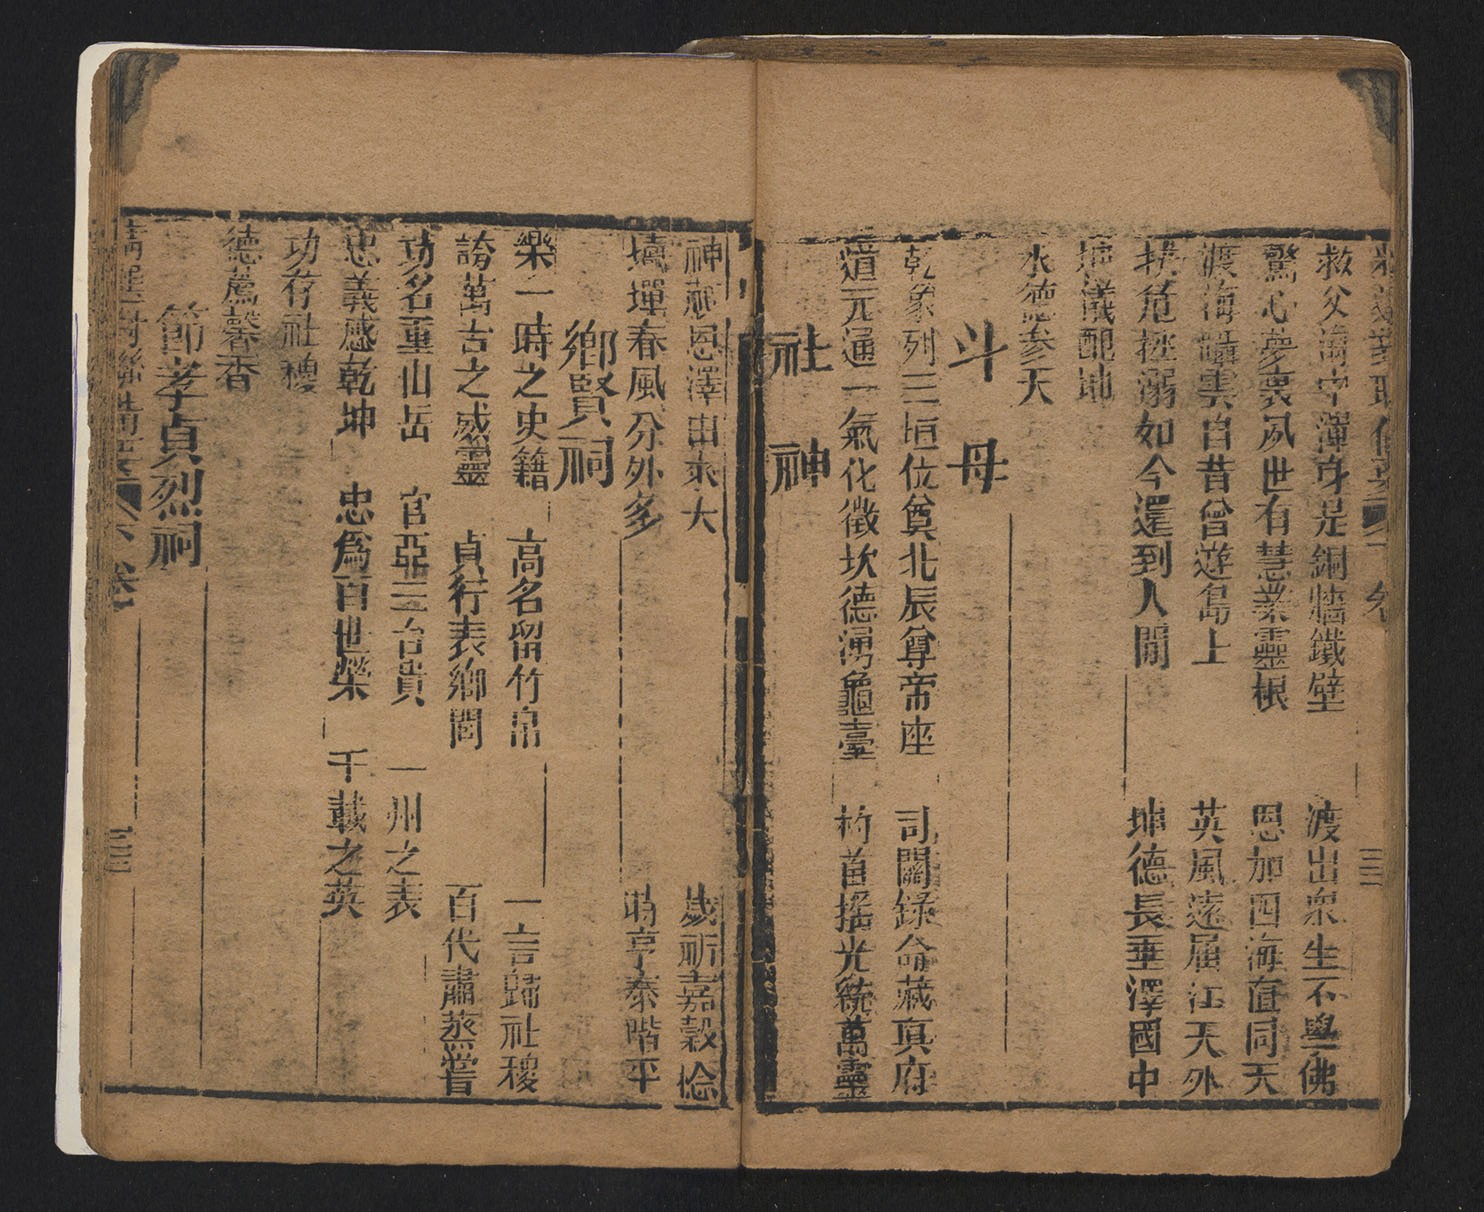 救父海中渾身是銅牆鐵壁　渡出衆生不學佛
驚心夢裏夙世有慧業靈根　恩加四海直同天
渡海囁雲自昔曾遊島上　英風遠届江天外
扶危拯溺如今還到人間　坤德長垂澤國中
坤儀配地
水德參天
斗母
乾象列三垣位奠北辰尊帝座　司關錄命藏真府
道元通一氣化徵坎德湧龜臺　杓首搖光統萬靈
社神
神祇恩澤由來大　歲祈嘉穀捻
壇墠春風分外多　時亨泰階平
鄉賢祠
樂一時之史籍　高名留竹帛　一言歸社稷
誇萬古之威靈　貞行表鄉閭　百代肅蒸嘗
功名重山岳　官亞三台貴　一州之表
忠義感乾坤　忠爲百世榮　千載之英
功存社稷
德薦馨香
節孝貞烈祠